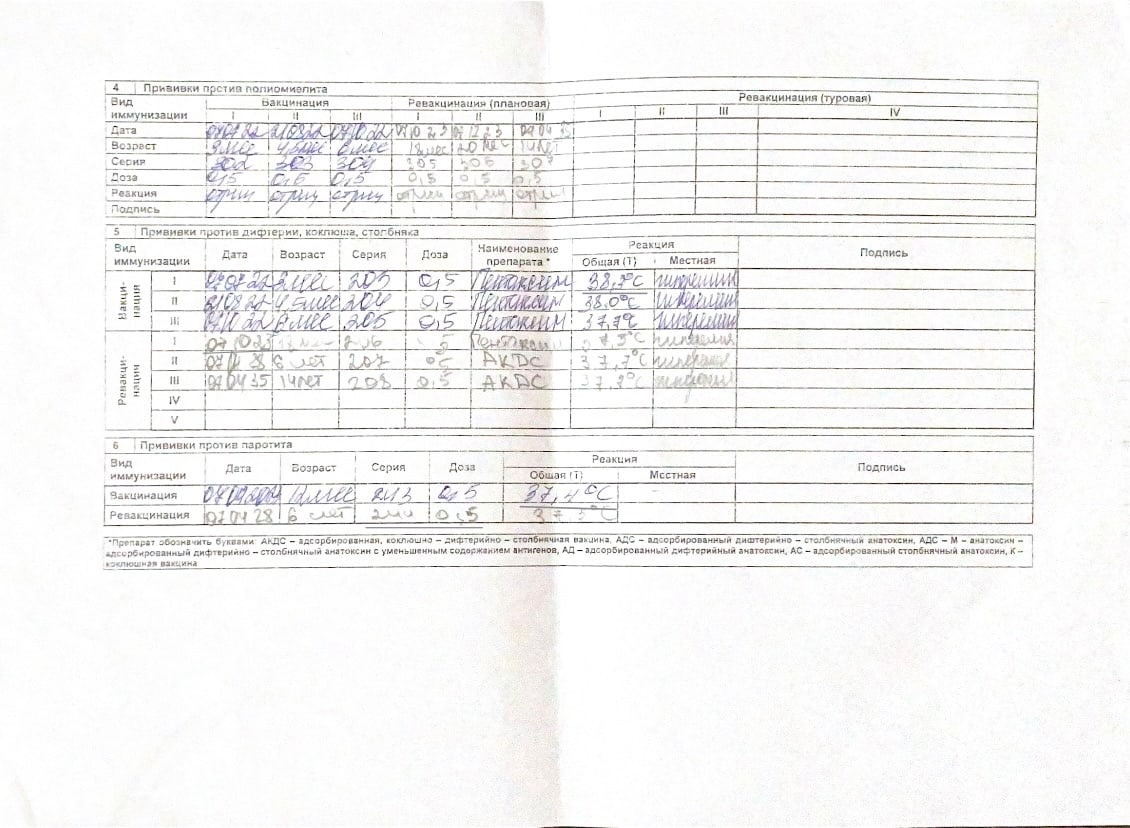 4 Прививки против полиомиелита
Вид иммунизации Вакцинация Ревакцинация (плановая) Ревакцинация (туровая)
I II III I II III I II III IV
Дата 07 07 22 21 08 22 07 10 22 07 10 23 07 12 23
Возраст 3 мес 4,5 мес 6 мес 18 мес 20 мес 14 лет
Серия 302 303 304 305 306 307
Доза 0,5 0,5 0,5 0,5 0,5 0,5
Реакция отриц отриц отриц отриц отриц отриц
Подпись
5 Прививки против дифтерии, коклюша, столбняка
Вид иммунизации Дата Возраст Серия Доза Наименование препарата * Реакция Подпись
Общая (Т) Местная
Вакцинация
I 07 07 22 3 мес 203 0,5 Пентаксим 38,7°С гиперемия
II 21 08 22 4,5 мес 204 0,5 Пентаксим 38,0°С гиперемия
III 07 10 22 6 мес 205 0,5 Пентаксим 37,7°С гиперемия
Ревакцинация
I 07 10 23 206 Пентаксим гиперемия
II 07 04 28 6 лет 207 АКДС 37,7°С гиперемия
III 07 04 35 14 лет 208 0,5 АКДС гиперемия
IV
V
6 Прививки против паротита
Вид иммунизации Дата Возраст Серия Доза Реакция Подпись
Общая (Т) Местная
Вакцинация 12 мес 243 0,5 37,4°С —
Ревакцинация 07 04 28 6 лет 0,5
*Препарат обозначить буквами: АКДС – адсорбированная, коклюшно – дифтерийно – столбнячная вакцина, АДС – адсорбированный дифтерийно – столбнячный анатоксин, АДС – М – анатоксин –
адсорбированный дифтерийно – столбнячный анатоксин с уменьшенным содержанием антигенов, АД – адсорбированный дифтерийный анатоксин, АС – адсорбированный столбнячный анатоксин, К –
коклюшная вакцина